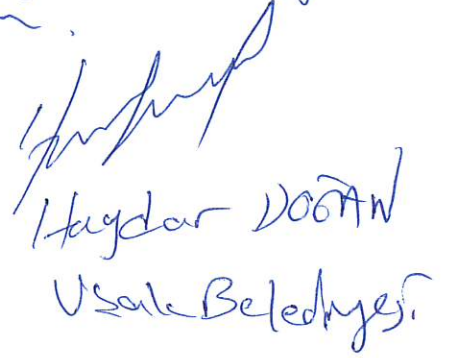 Haydar DOĞAN
Uşak Belediyesi.